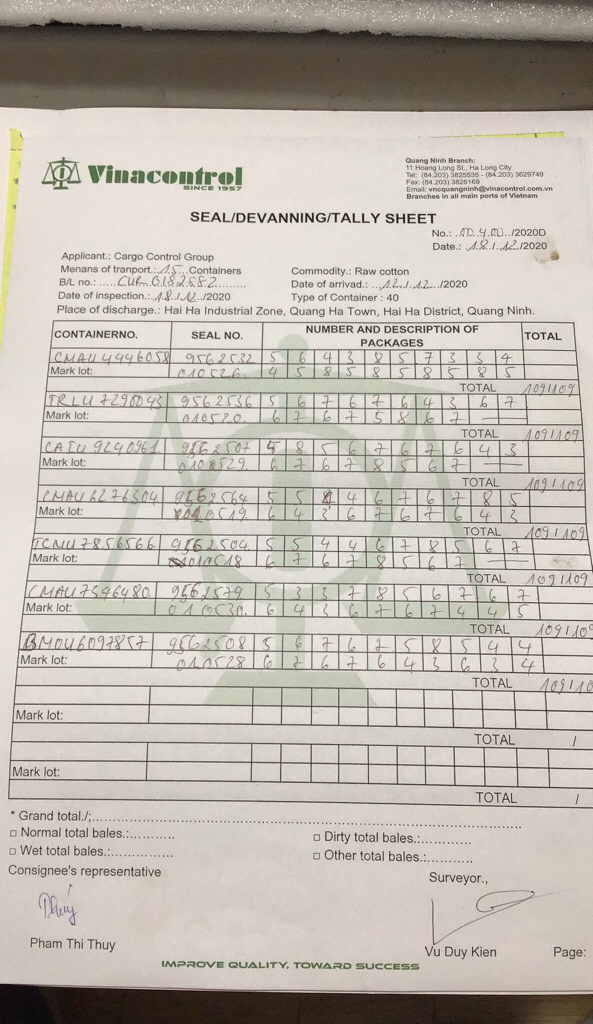 Vinacontrol
SINCE 1957
Quang Ninh Branch:
11 Hoang Long St., Ha Long City
Tel: (84.203) 3825535 - (84.203) 3629749
Fax: (84.203) 3826169
Email: vncquangninh@vinacontrol.com.vn
Branches in all main ports of Vietnam
SEAL/DEVANNING/TALLY SHEET
No.: 00.4.00./2020D
Date.: 18./.12./2020
Applicant.: Cargo Control Group
Menans of tranport.: 15 Containers
Commodity.: Raw cotton
B/L no.: CUR 0182582
Date of arrivad.: 12./.12./2020
Date of inspection.: 18/12/2020
Type of Container : 40
Place of discharge.: Hai Ha Industrial Zone, Quang Ha Town, Hai Ha District, Quang Ninh.
CONTAINERNO. SEAL NO. NUMBER AND DESCRIPTION OF PACKAGES TOTAL
CMAU4446058 9562532 5 6 4 3 8 5 7 3 3 4
Mark lot: 010526 4 5 8 5 8 5 8 5 8 5
TOTAL 109/109
TRLU7290043 9562536 5 6 7 6 7 6 4 3 6 7
Mark lot: 010520 6 7 6 7 5 8 6 7
TOTAL 109/109
CAIU9240961 9562507 5 8 5 6 7 6 7 6 4 3
Mark lot: 0108529 6 7 6 7 8 5 6 7
TOTAL 109/109
CMAU6276304 9562564 5 5 4 4 6 7 6 7 8 5
Mark lot: 010519 6 4 3 6 7 6 7 6 4 3
TOTAL 109/109
TCNU7856566 9562504 5 5 4 4 6 7 8 5 6 7
Mark lot: 010518 6 7 6 7 8 5 6 7
TOTAL 109/109
CMAU7546480 9562579 5 3 3 7 8 5 6 7 6 7
Mark lot: 010530 6 4 3 6 7 6 7 4 4 5
TOTAL 109/109
BMOU6097857 9562508 5 6 7 6 7 5 8 5 4 4
Mark lot: 010528 6 7 6 7 6 4 3 6 3 4
TOTAL 109/10
Mark lot:
TOTAL /
Mark lot:
TOTAL /
* Grand total./;
□ Normal total bales.:
□ Dirty total bales.:
□ Wet total bales.:
□ Other total bales.:
Consignee's representative
Surveyor.,
Thuý
Pham Thi Thuy
Vu Duy Kien
Page:
IMPROVE QUALITY, TOWARD SUCCESS